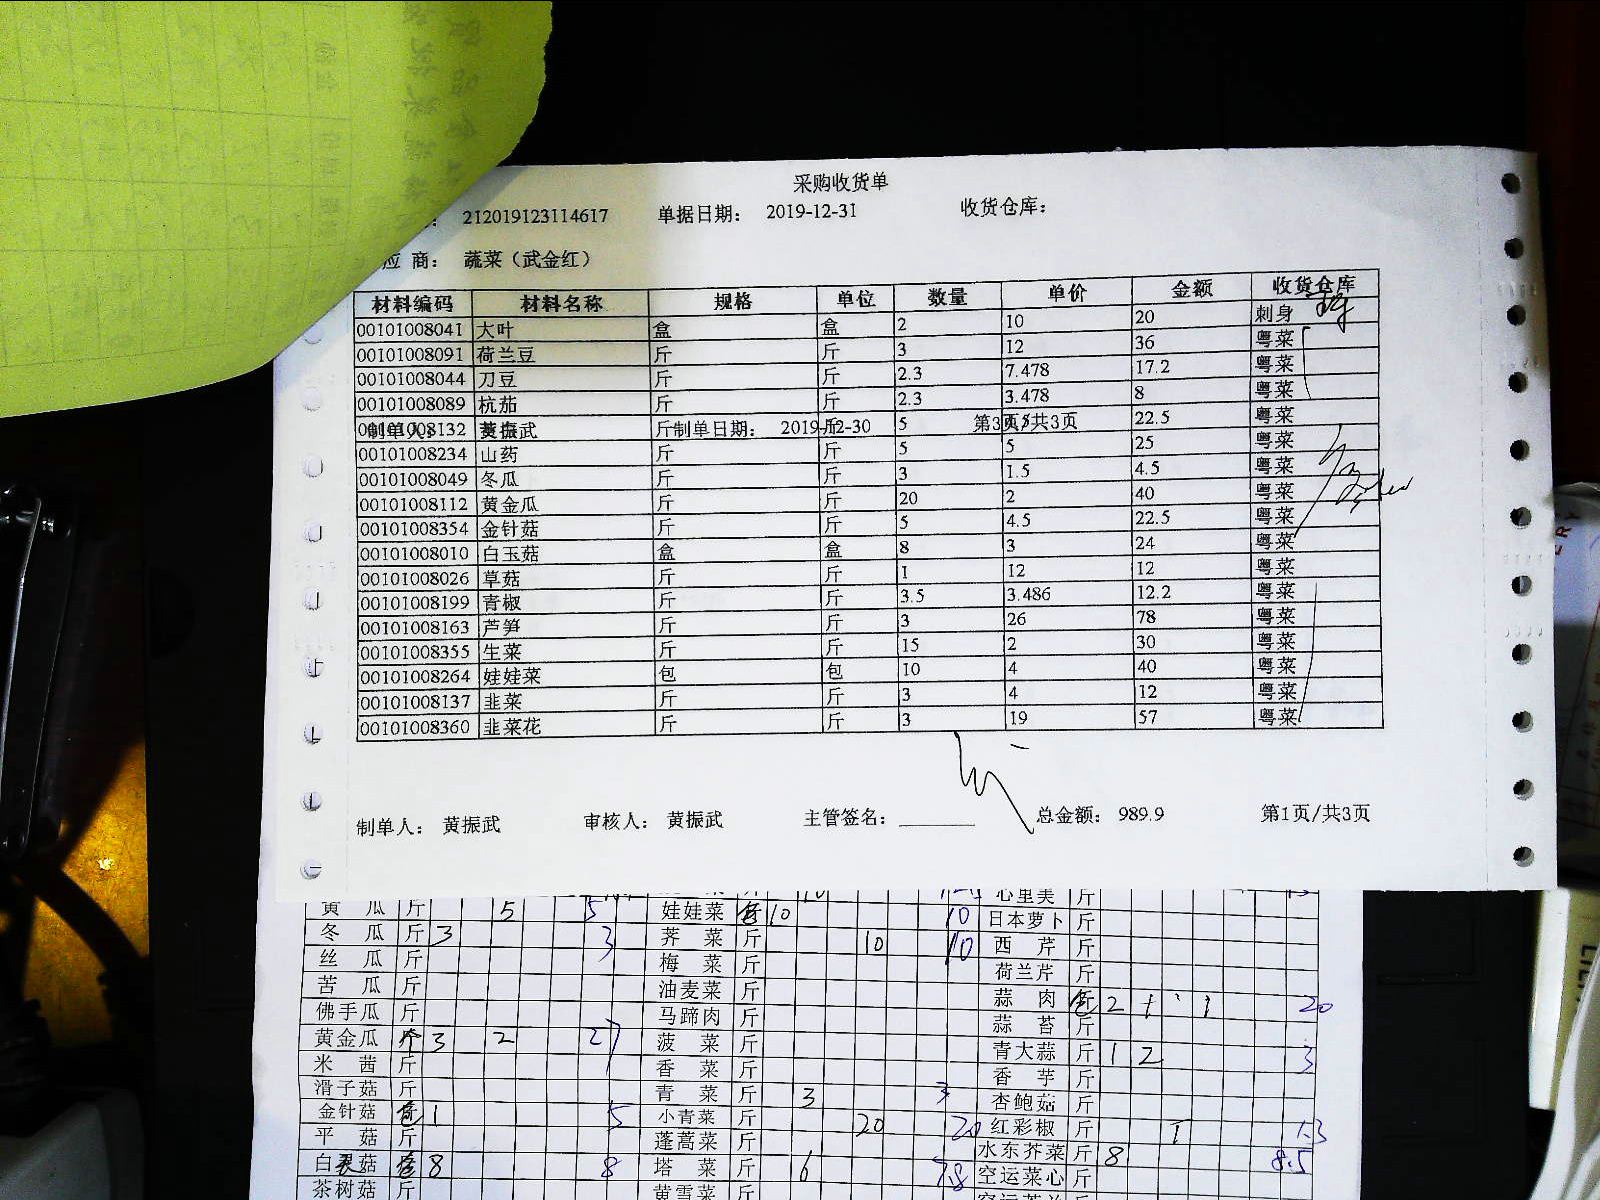 采购收货单
212019123114617 单据日期： 2019-12-31 收货仓库：
应 商： 蔬菜（武金红）
材料编码 材料名称 规格 单位 数量 单价 金额 收货仓库
00101008041 大叶 盒 盒 2 10 20 刺身
00101008091 荷兰豆 斤 斤 3 12 36 粤菜
00101008044 刀豆 斤 斤 2.3 7.478 17.2 粤菜
00101008089 杭茄 斤 斤 2.3 3.478 8 粤菜
00101008132 斤 斤 5 22.5 粤菜
制单人： 黄振武 制单日期： 2019-12-30 第3页/共3页
00101008234 山药 斤 斤 5 5 25 粤菜
00101008049 冬瓜 斤 斤 3 1.5 4.5 粤菜
00101008112 黄金瓜 斤 斤 20 2 40 粤菜
00101008354 金针菇 斤 斤 5 4.5 22.5 粤菜
00101008010 白玉菇 盒 盒 8 3 24 粤菜
00101008026 草菇 斤 斤 1 12 12 粤菜
00101008199 青椒 斤 斤 3.5 3.486 12.2 粤菜
00101008163 芦笋 斤 斤 3 26 78 粤菜
00101008355 生菜 斤 斤 15 2 30 粤菜
00101008264 娃娃菜 包 包 10 4 40 粤菜
00101008137 韭菜 斤 斤 3 4 12 粤菜
00101008360 韭菜花 斤 斤 3 19 57 粤菜
制单人： 黄振武 审核人： 黄振武 主管签名： 总金额： 989.9 第1页/共3页
心里美 斤
黄瓜 斤 5 5 娃娃菜 包 10 10 日本萝卜 斤
冬瓜 斤 3 3 荠菜 斤 10 10 西芹 斤
丝瓜 斤 梅菜 斤 荷兰芹 斤
苦瓜 斤 油麦菜 斤 蒜肉 2 1 1 20
佛手瓜 斤 马蹄肉 斤 蒜苔 斤
黄金瓜 个 3 2 27 菠菜 斤 青大蒜 斤 1 2 3
米茜 斤 香菜 斤 香芋 斤
滑子菇 斤 青菜 斤 3 3 杏鲍菇 斤
金针菇 包 1 5 小青菜 斤 20 20 红彩椒 斤 1 1.3
平菇 斤 蓬蒿菜 斤 水东芥菜 斤 8 8.5
白灵菇 盒 8 8 塔菜 斤 6 7.8 空运菜心 斤
茶树菇 斤 黄雪菜 斤